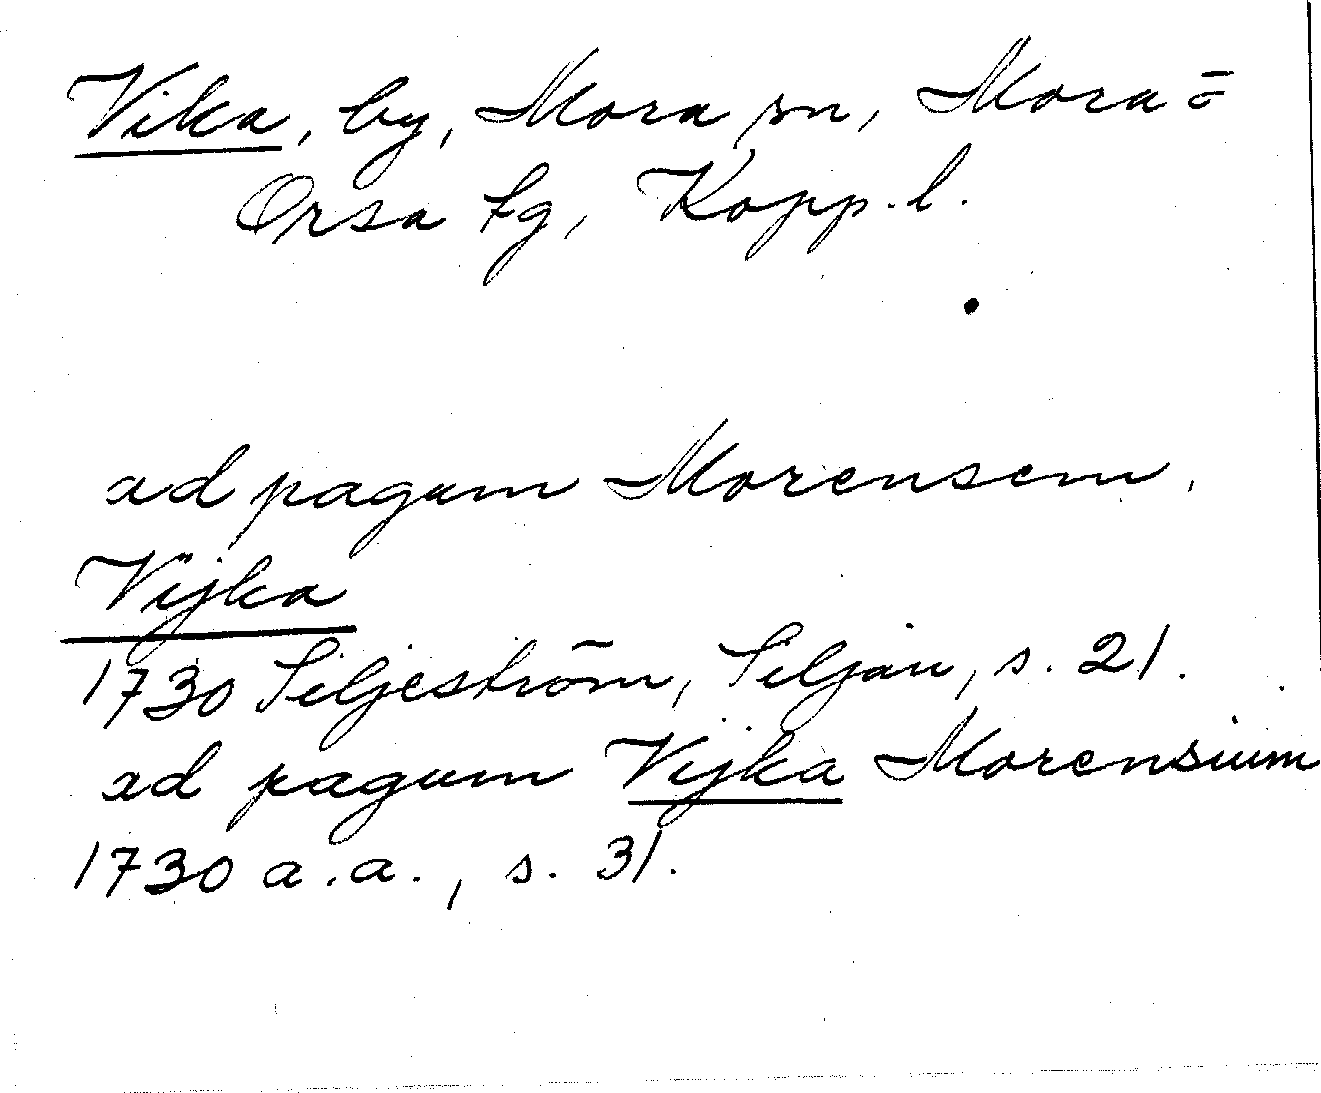 Vika, by, Mora sn, Mora o
Orsa tg, Kopp. l.
ad pagum Morensem,
Vijka
1730 Siljeström, Siljan, s. 21.
ad pagum Vijka Morensium
1730 a.a., s. 31.